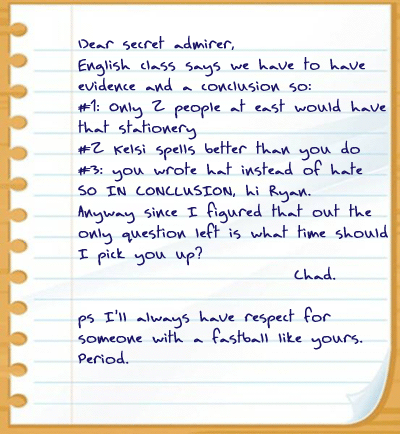 Dear secret admirer,
English class says we have to have
evidence and a conclusion so:
#1: Only 2 people at east would have
that stationery
#2 Kelsi spells better than you do
#3: you wrote hat instead of hate
SO IN CONCLUSION, hi Ryan.
Anyway since I figured that out the
only question left is what time should
I pick you up?
Chad.
ps I'll always have respect for
someone with a fastball like yours.
Period.